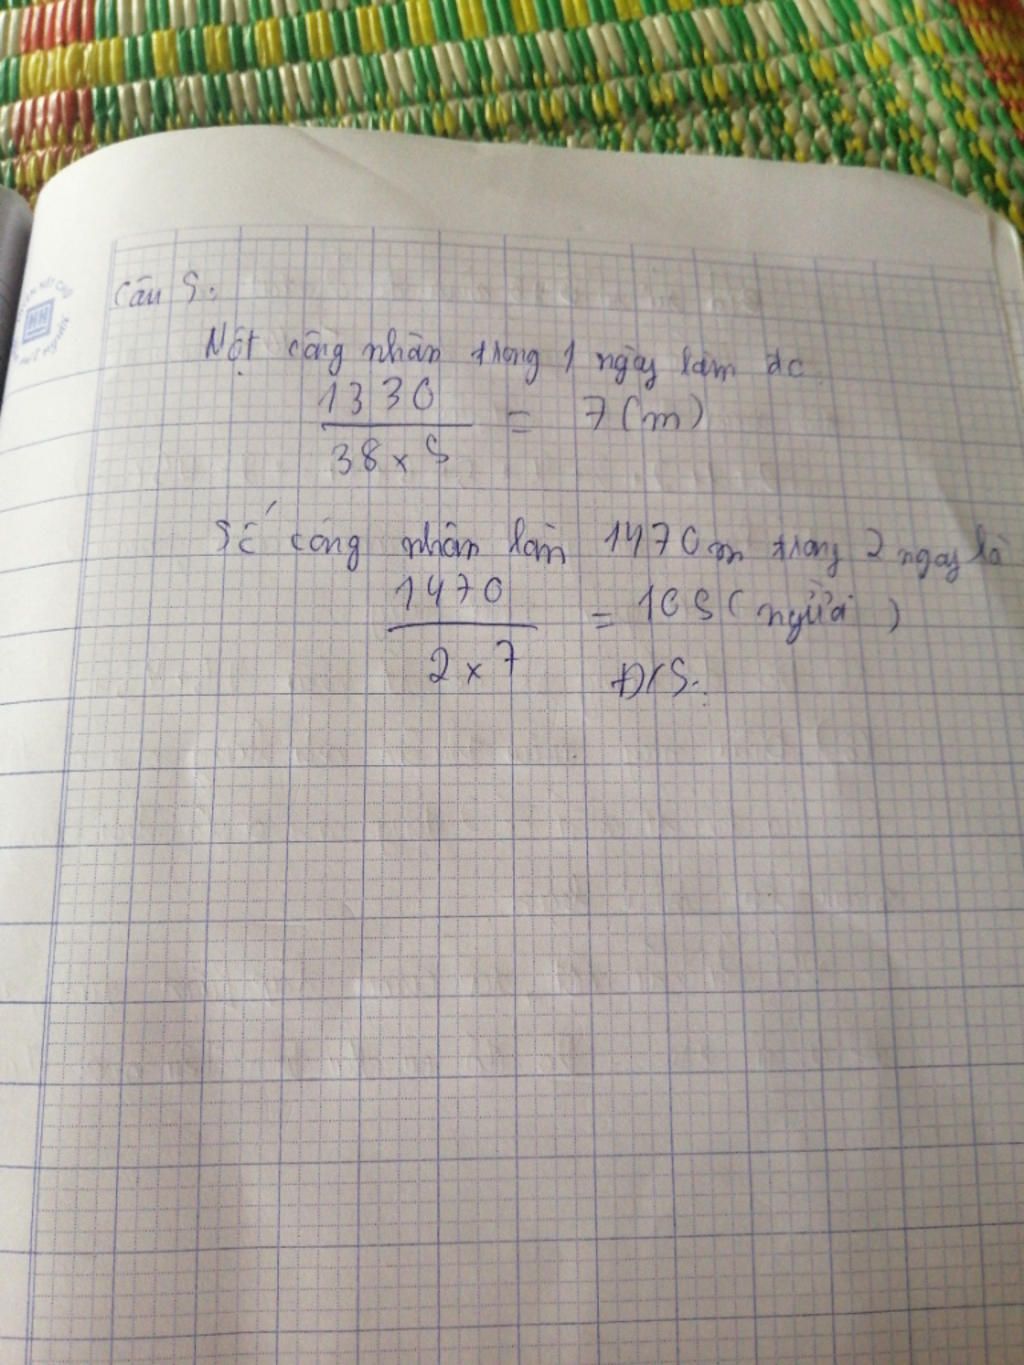 Câu 5:
Một công nhân trong 1 ngày làm đc
1330
= 7 (m)
38 x 5
Số công nhân làm 1470m trong 2 ngày là
1470
= 105 ( người )
2 x 7
Đ/S: